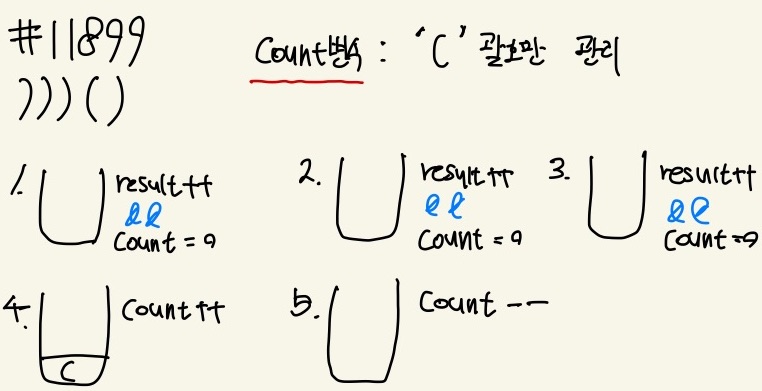 #11899
)))()
Count변수 : '(' 괄호만 관리
1. result++
&&
Count = 0
2. result++
&&
Count = 0
3. result++
&&
Count = 0
4. Count++
(
5. Count --